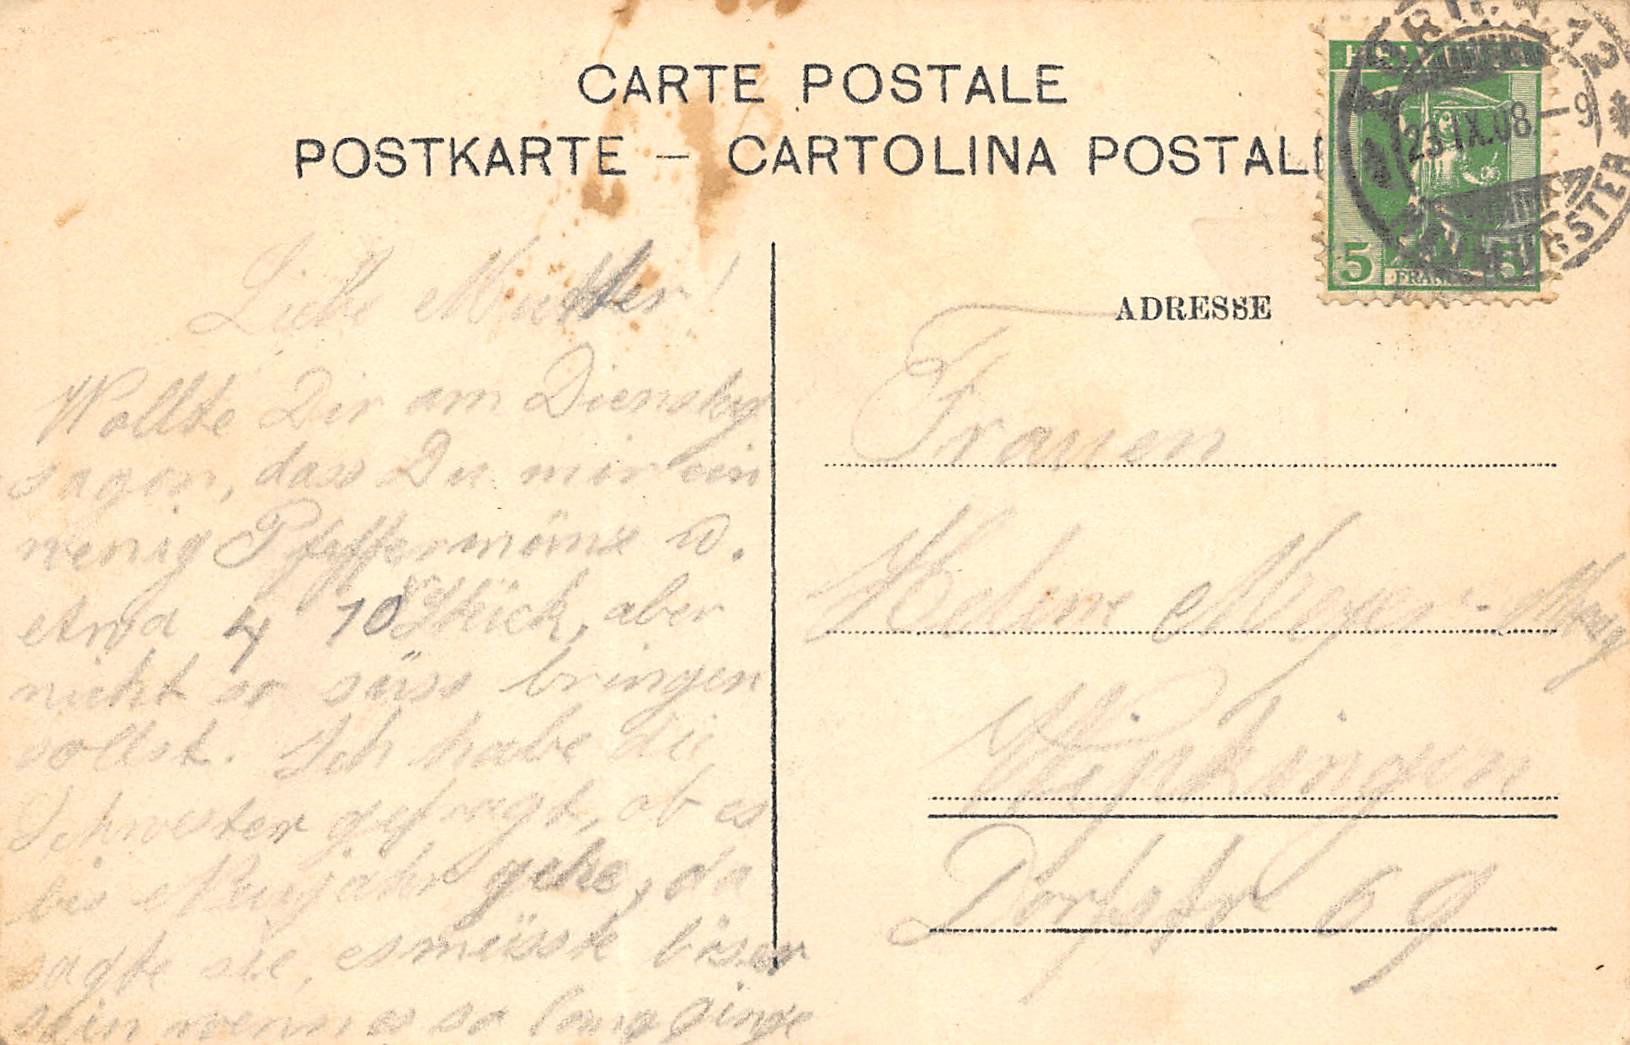 CARTE POSTALE
POSTKARTE — CARTOLINA POSTALE
23.IX.08.–9
5
FRANCO
ADRESSE
Liebe Mutter!
Wollte Dir am Dienstag
sagen, dass Du mir ein
wenig Pfeffermünz u.
etwa 4 10 Stück, aber
nicht so süss bringen
sollst. Ich habe die
Schwester gefragt, ob es
bis Neujahr gehe, da
sagte sie, es müsste böser
sein wenn es so lang ginge
Frauen
Helene Meyer-
Wipkingen
Dorfstr 69